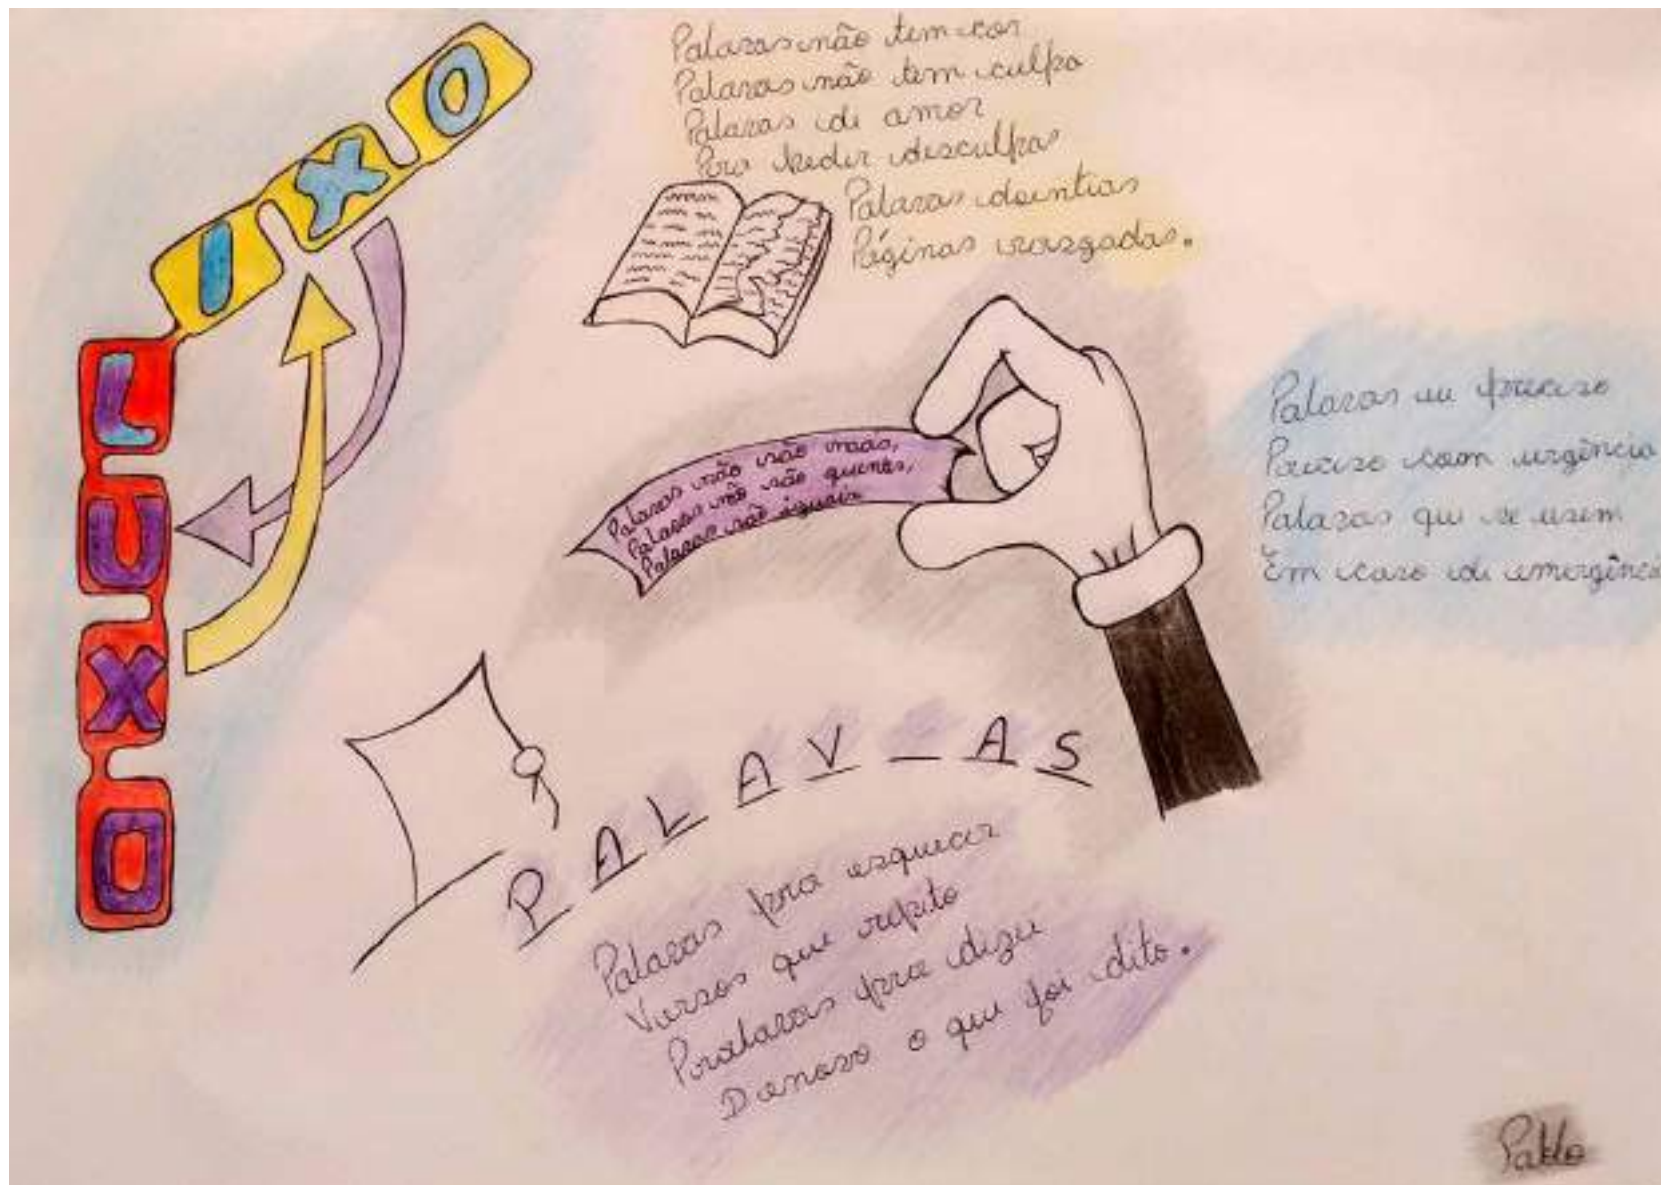 LIXO
LUXO
Palavras não tem cor
Palavras não tem culpa
Palavras de amor
Pra pedir desculpas
Palavras doentias
Páginas rasgadas.
Palavras não são más,
Palavras não são quentes,
Palavras são iguais
Palavras eu preciso
Preciso com urgência
Palavras que se usem
Em caso de emergência
PALAV_AS
Palavras pra esquecer
Versos que repito
Palavras pra dizer
De novo o que foi dito.
Pablo